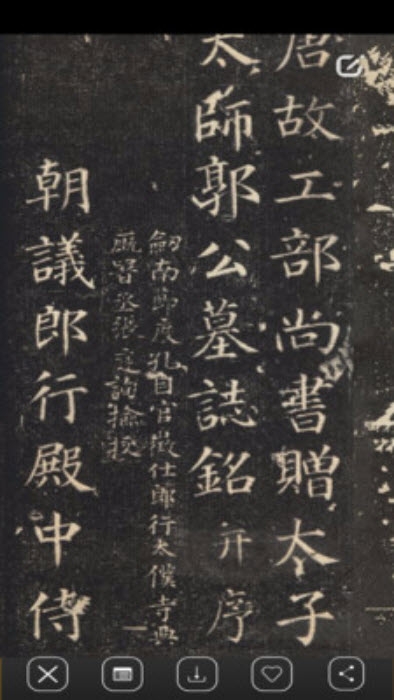 唐故工部尚書贈太子
太師郭公墓誌銘并序
劒南節度孔目官徵仕郎行太僕寺典
廐署丞張遵詢檢校
朝議郎行殿中侍